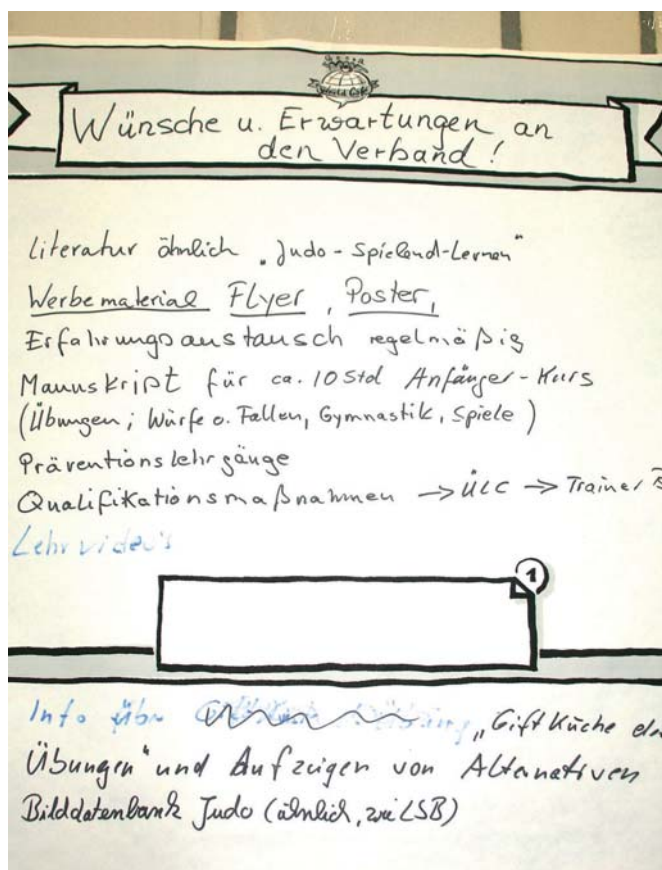 World Café
Wünsche u. Erwartungen an
den Verband!
Literatur ähnlich „Judo-Spielend-Lernen"
Werbematerial Flyer, Poster,
Erfahrungsaustausch regelmäßig
Manuskript für ca. 10 Std Anfänger-Kurs
(Übungen; Würfe o. Fallen, Gymnastik, Spiele)
Präventionslehrgänge
Qualifikationsmaßnahmen → ÜLC → Trainer B
Lehrvideo's
1
Info über „Giftküche der
Übungen" und Aufzeigen von Alternativen
Bilddatenbank Judo (ähnlich, wie LSB)